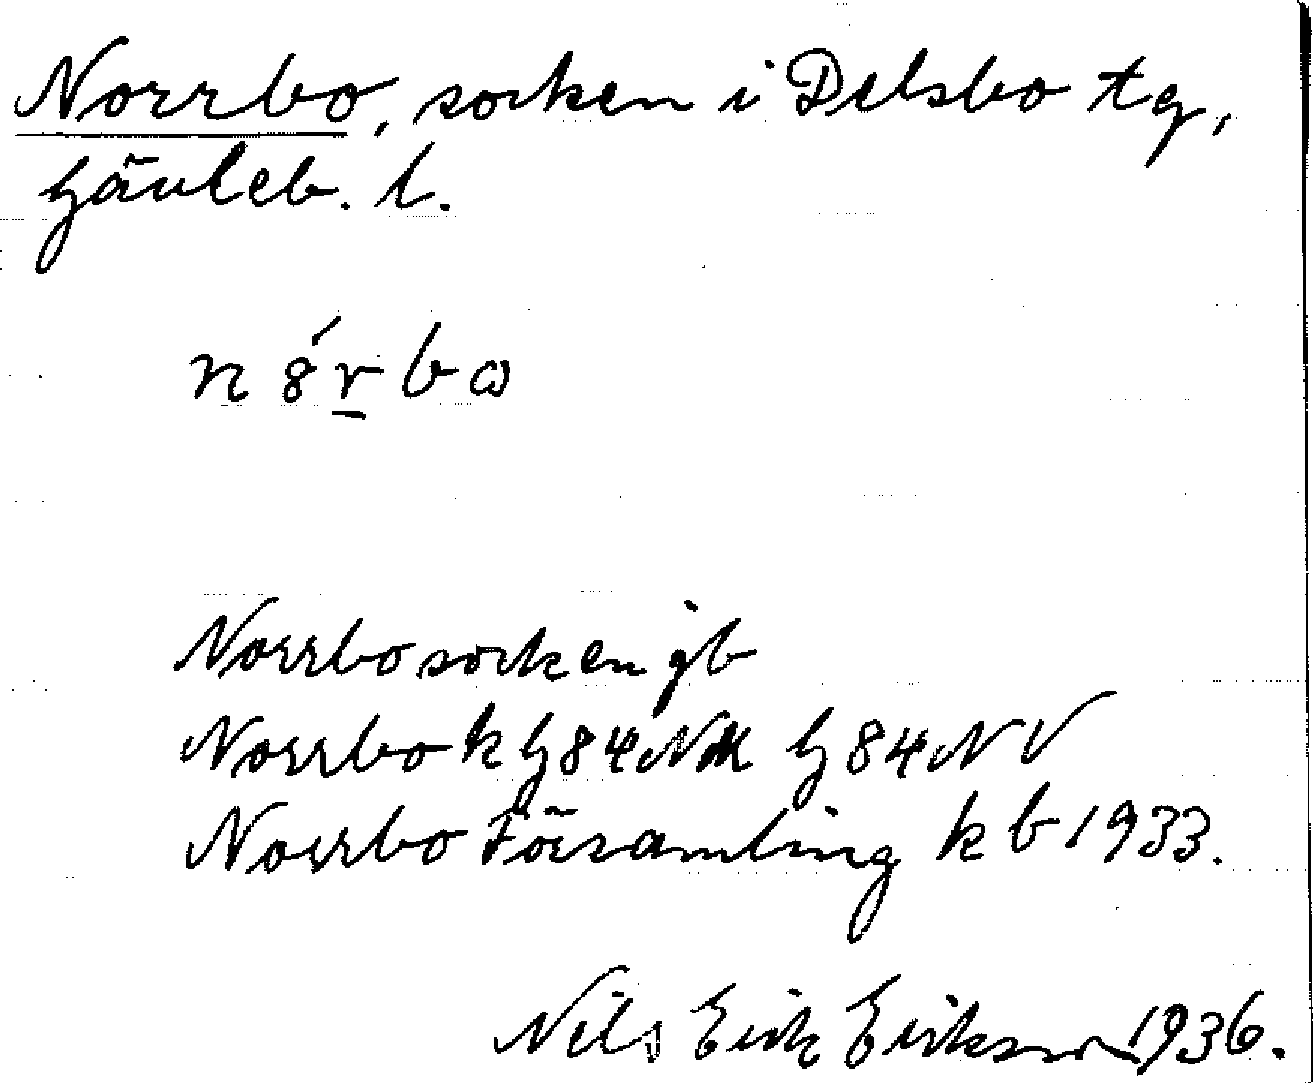 Norrbo, socken i Delsbo tg,
Gävleb. l.
n ŏ́r̲bω
Norrbo socken jb
Norrbo k G84NV
Norrbo Församling kb 1933.
Nils Erik Eriksson 1936.